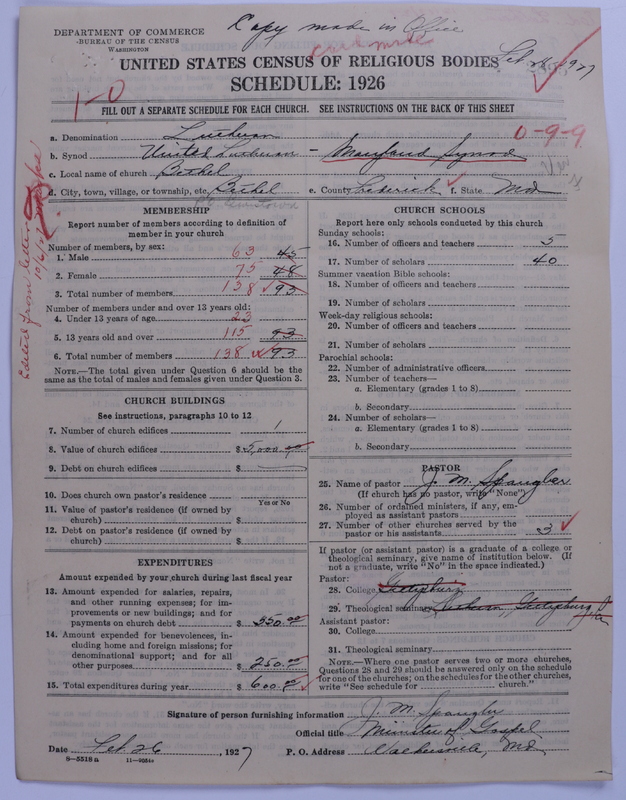 Copy made in Office
DEPARTMENT OF COMMERCE
BUREAU OF THE CENSUS
WASHINGTON
UNITED STATES CENSUS OF RELIGIOUS BODIES
SCHEDULE: 1926
1-0
FILL OUT A SEPARATE SCHEDULE FOR EACH CHURCH. SEE INSTRUCTIONS ON THE BACK OF THIS SHEET
a. Denomination Lutheran
0-9-9
b. Synod United Lutheran - Maryland Synod
c. Local name of church Bethel
d. City, town, village, or township, etc. Bethel e. County Frederick f. State Md
MEMBERSHIP
Report number of members according to definition of member in your church
Number of members, by sex:
1. Male 63 45
2. Female 75 48
3. Total number of members 138 93
Number of members under and over 13 years old:
4. Under 13 years of age 23
5. 13 years old and over 115 93
6. Total number of members 138 93
NOTE.—The total given under Question 6 should be
same as the total of males and females given under Question 3.
Edited from letter
CHURCH BUILDINGS
See instructions, paragraphs 10 to 12
7. Number of church edifices 1
8. Value of church edifices $5,000.00
9. Debt on church edifices $
10. Does church own pastor's residence
Yes or No
11. Value of pastor's residence (if owned by
church) $
12. Debt on pastor's residence (if owned by
church) $
EXPENDITURES
Amount expended by your church during last fiscal year
13. Amount expended for salaries, repairs,
and other running expenses; for im-
provements or new buildings; and for
payments on church debt $ 350.00
14. Amount expended for benevolences, in-
cluding home and foreign missions; for
denominational support; and for all
other purposes $ 250.00
15. Total expenditures during year $ 600.00
CHURCH SCHOOLS
Report here only schools conducted by this church
Sunday schools:
16. Number of officers and teachers 5
17. Number of scholars 40
Summer vacation Bible schools:
18. Number of officers and teachers
19. Number of scholars
Week-day religious schools:
20. Number of officers and teachers
21. Number of scholars
Parochial schools:
22. Number of administrative officers
23. Number of teachers—
a. Elementary (grades 1 to 8)
b. Secondary
24. Number of scholars—
a. Elementary (grades 1 to 8)
b. Secondary
PASTOR
25. Name of pastor J. M. Spangler
(If church has no pastor, write "None")
26. Number of ordained ministers, if any, em-
ployed as assistant pastors
27. Number of other churches served by the
pastor or his assistants 3
If pastor (or assistant pastor) is a graduate of a college or
theological seminary, give name of institution below. (If
not a graduate, write "No" in the space indicated.)
Pastor:
28. College Gettysburg
29. Theological seminary Lutheran, Gettysburg Pa
Assistant pastor:
30. College
31. Theological seminary
NOTE.—Where one pastor serves two or more churches,
Questions 28 and 29 should be answered only on the schedule
for one of the churches; on the schedules for the other churches,
write "See schedule for church."
Signature of person furnishing information J. M. Spangler
Official title Minister of Gospel
Date Feb. 26, 1927 P. O. Address Walkersville, Md.
8-5518 a